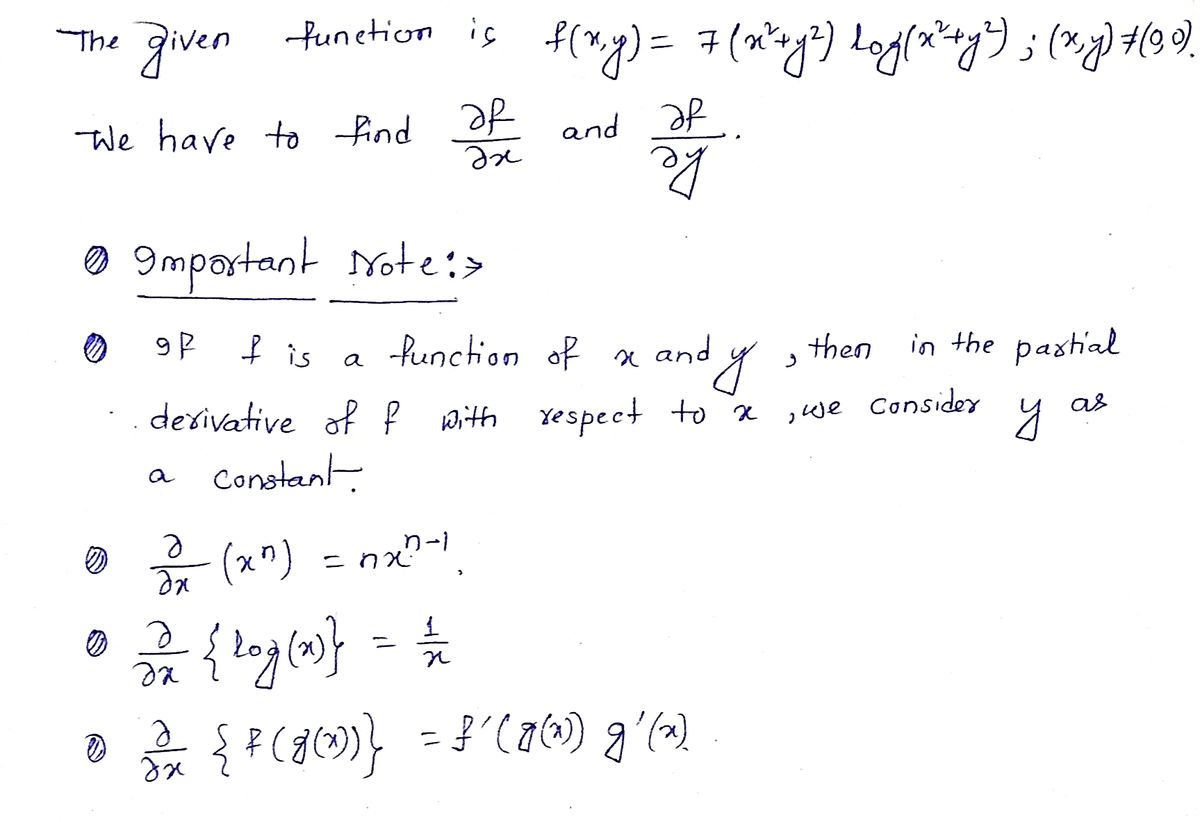 The given function is f(x,y) = 7(x²+y²) log(x²+y²) ; (x,y)≠(0,0).
We have to find ∂f/∂x and ∂f/∂y.
Important Note:>
If f is a function of x and y, then in the partial
derivative of f with respect to x, we consider y as
a constant.
∂/∂x (xⁿ) = nxⁿ⁻¹.
∂/∂x {log(x)} = 1/x
∂/∂x {f(g(x))} = f'(g(x)) g'(x).